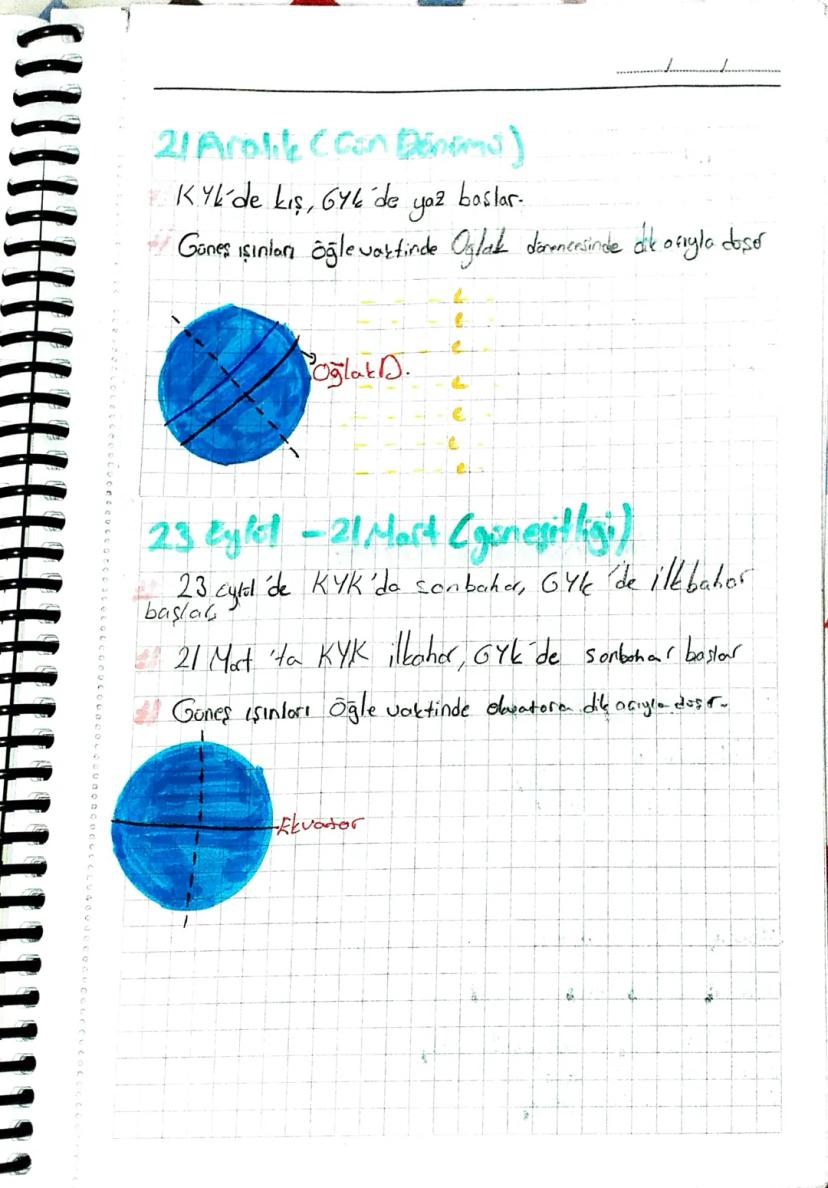 21 Aralık (Gün Dönümü)
KYK'de kış, GYK'de yaz başlar.
Güneş ışınları öğle vaktinde Oğlak dönencesinde dik açıyla düşer
Oğlak D.
23 Eylül - 21 Mart (güneşitliği)
23 Eylül'de KYK'da sonbahar, GYK'de ilkbahar
başlar,
21 Mart'ta KYK ilbahar, GYK'de sonbahar başlar
Güneş ışınları Öğle vaktinde ekvatora dik açıyla düşer.
Ekvator